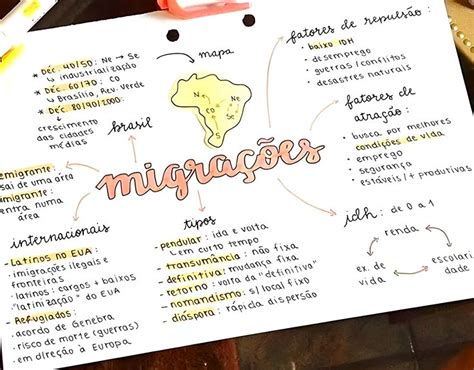 * Déc. 40/50: Ne → Se
↳ industrialização
* Déc. 60/70: CO
↳ Brasília, Rev. Verde
* Déc. 80/90/2000:
crescimento
das cidades
médias
brasil
mapa
N
Ne
Co
Se
S
fatores de repulsão:
• baixo IDH
• desemprego
• guerras/conflitos
• desastres naturais
fatores de
atração:
• busca por melhores
condições de vida
• emprego
• segurança
• estáveis/+ produtivas
migrações
emigrante:
sai de uma área
imigrante:
entra numa
área
internacionais
- Latinos no EUA:
• imigrações ilegais e
fronteiras
• latinos: cargos + baixos
• "latinização" do EUA
- Refugiados:
• acordo de Genebra
• risco de morte (guerras)
• em direção à Europa
tipos
• pendular: ida e volta
↳ em curto tempo
• transumância: não fixa
• definitiva: mudança fixa
• retorno: volta da "definitiva"
• nomandismo: s/ local fixo
• diáspora: rápida dispersão
idh: de 0 a 1
renda
ex. de
vida
escolari
dade